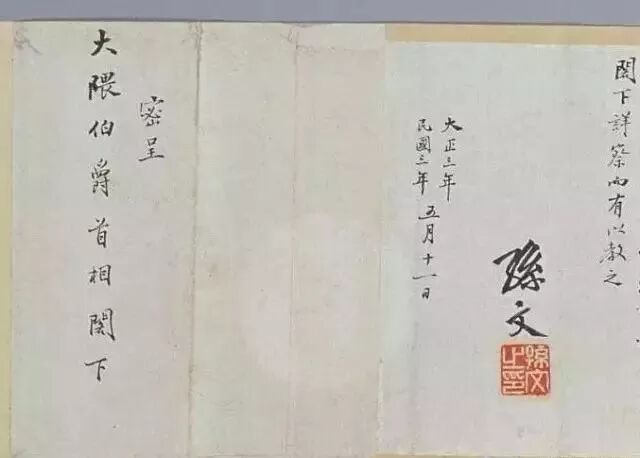 閣下詳察而有以教之
大正三年
民國三年 五月十一日
孫文
孫文之印
密呈
大隈伯爵首相閣下